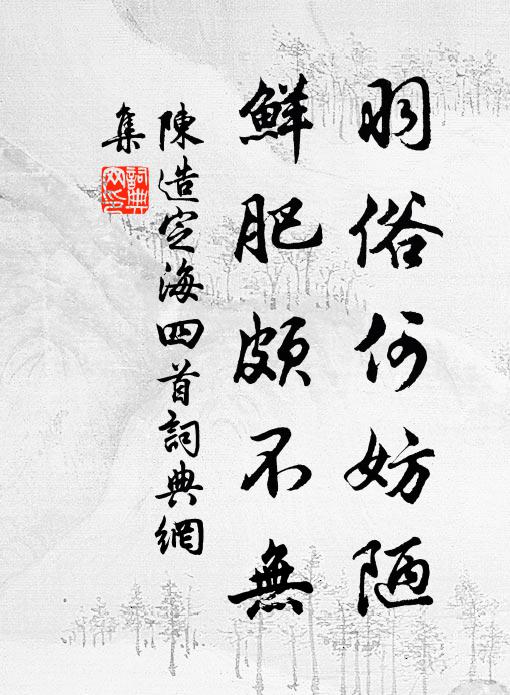 羽俗何妨陋
鮮肥頗不無
陳造定海四首詞典網
集
詞典
網印